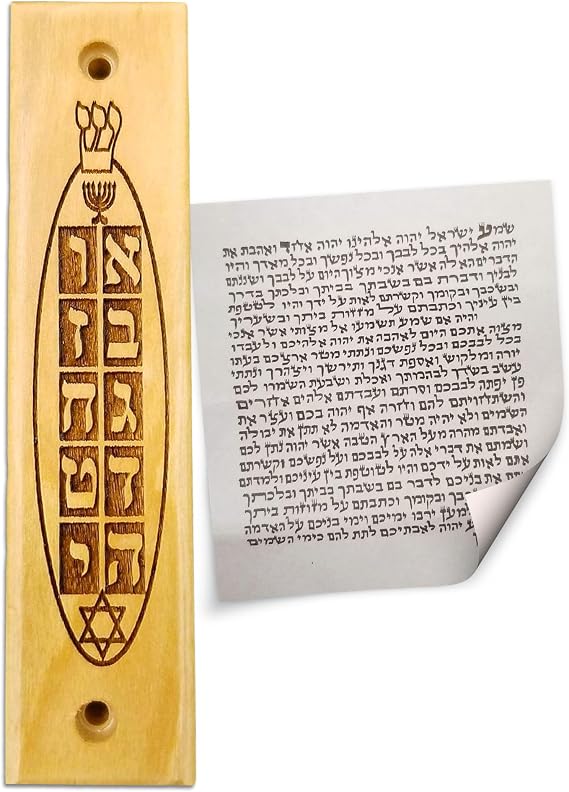 ש
א ו
ב ז
ג ח
ד ט
ה י
שמע ישראל יהוה אלהינו יהוה אחד ואהבת את
יהוה אלהיך בכל לבבך ובכל נפשך ובכל מאדך והיו
הדברים האלה אשר אנכי מצוך היום על לבבך ושננתם
לבניך ודברת בם בשבתך בביתך ובלכתך בדרך
ובשכבך ובקומך וקשרתם לאות על ידך והיו לטטפת
בין עיניך וכתבתם על מזזות ביתך ובשעריך
והיה אם שמע תשמעו אל מצותי אשר אנכי
מצוה אתכם היום לאהבה את יהוה אלהיכם ולעבדו
בכל לבבכם ובכל נפשכם ונתתי מטר ארצכם בעתו
יורה ומלקוש ואספת דגנך ותירשך ויצהרך ונתתי
עשב בשדך לבהמתך ואכלת ושבעת השמרו לכם
פן יפתה לבבכם וסרתם ועבדתם אלהים אחרים
והשתחויתם להם וחרה אף יהוה בכם ועצר את
השמים ולא יהיה מטר והאדמה לא תתן את יבולה
ואבדתם מהרה מעל הארץ הטבה אשר יהוה נתן לכם
ושמתם את דברי אלה על לבבכם ועל נפשכם וקשרתם
אתם לאות על ידכם והיו לטוטפת בין עיניכם ולמדתם
את בניכם לדבר בם בשבתך בביתך ובלכתך
ובקומך וכתבתם על מזוזות ביתך
ירבו ימיכם וימי בניכם על האדמה
יהוה לאבתיכם לתת להם כימי השמים